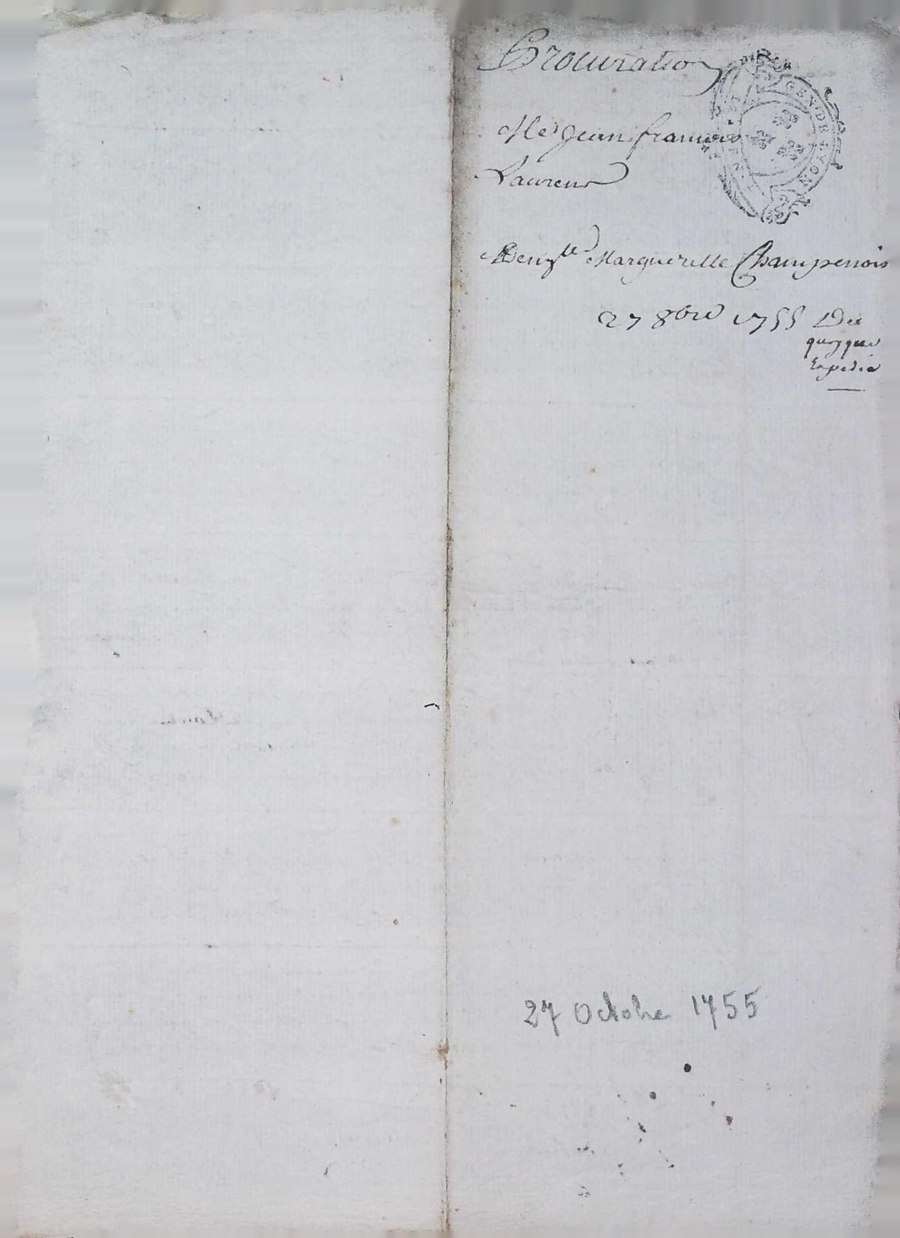 Procuration
GEN·DE LYON
Me Jean francois
Laurens
Demlle Margueritte Champenois
27 8bre 1755
quoyque
Expedié
27 Octobre 1755